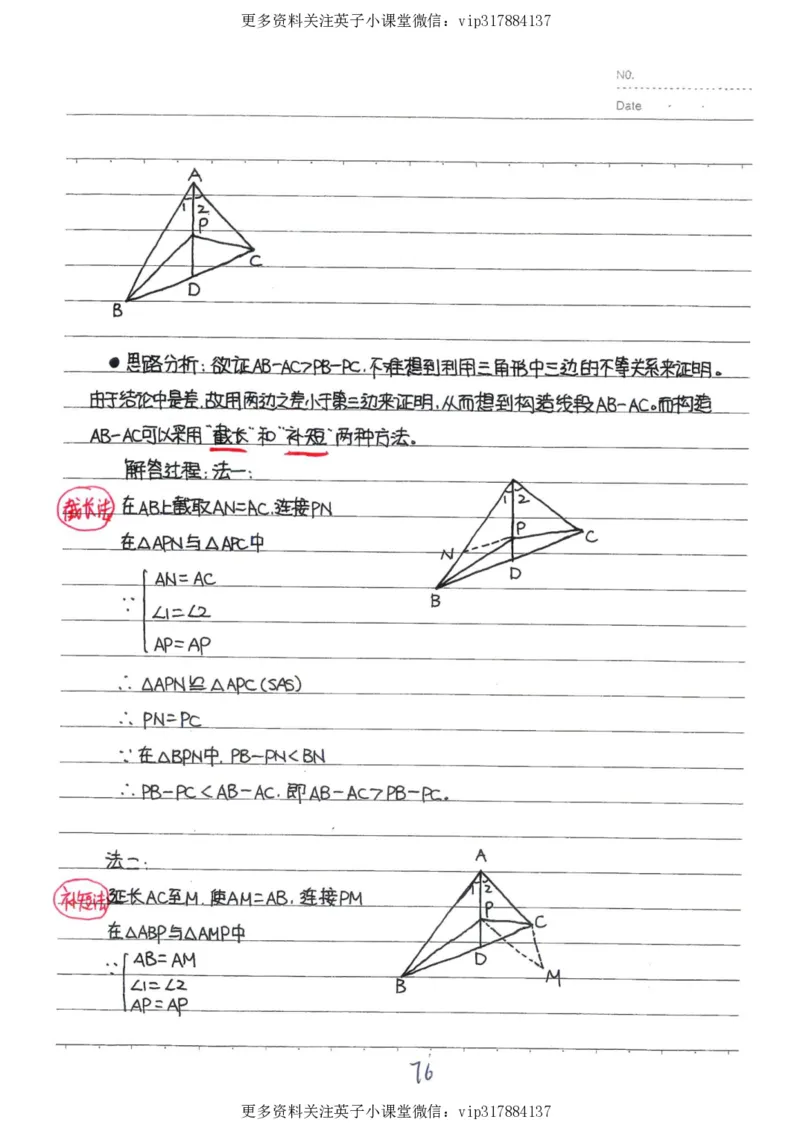 更多资料关注英子小课堂微信：vip317884137
No.
Date
A
1 2
P
C
D
B
●思路分析：欲证AB-AC>PB-PC，不难想到利用三角形中三边的不等关系来证明。
由于结论中是差，故用两边之差小于第三边来证明，从而想到构造线段AB-AC。而构造
AB-AC可以采用"截长"和"补短"两种方法。
解答过程：法一：
截长法 在AB上截取AN=AC，连接PN
在△APN与△APC中
∵ AN=AC
∠1=∠2
AP=AP
1 2
P
C
N
D
B
∴ △APN≌△APC(SAS)
∴ PN=PC
∵在△BPN中，PB-PN<BN
∴PB-PC<AB-AC，即AB-AC>PB-PC。
法二：
补短法 延长AC至M，使AM=AB，连接PM
在△ABP与△AMP中
∵ AB=AM
∠1=∠2
AP=AP
A
1 2
P
C
D
M
B
76
更多资料关注英子小课堂微信：vip317884137